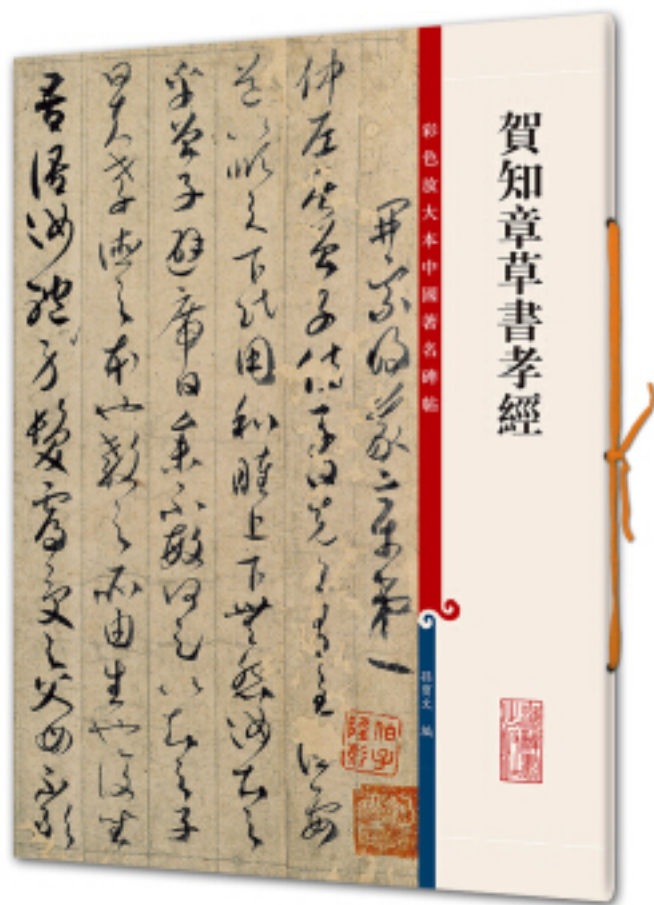 賀知章草書孝經
彩色放大本中國著名碑帖
孫寶文 編
開宗明義章第一
仲尼居曾子侍子曰先王有至德要
道以順天下民用和睦上下無怨汝知之
乎曾子避席曰參不敏何足以知之子
曰夫孝德之本也教之所由生也復坐
吾語汝體身髮膚受之父母不敢